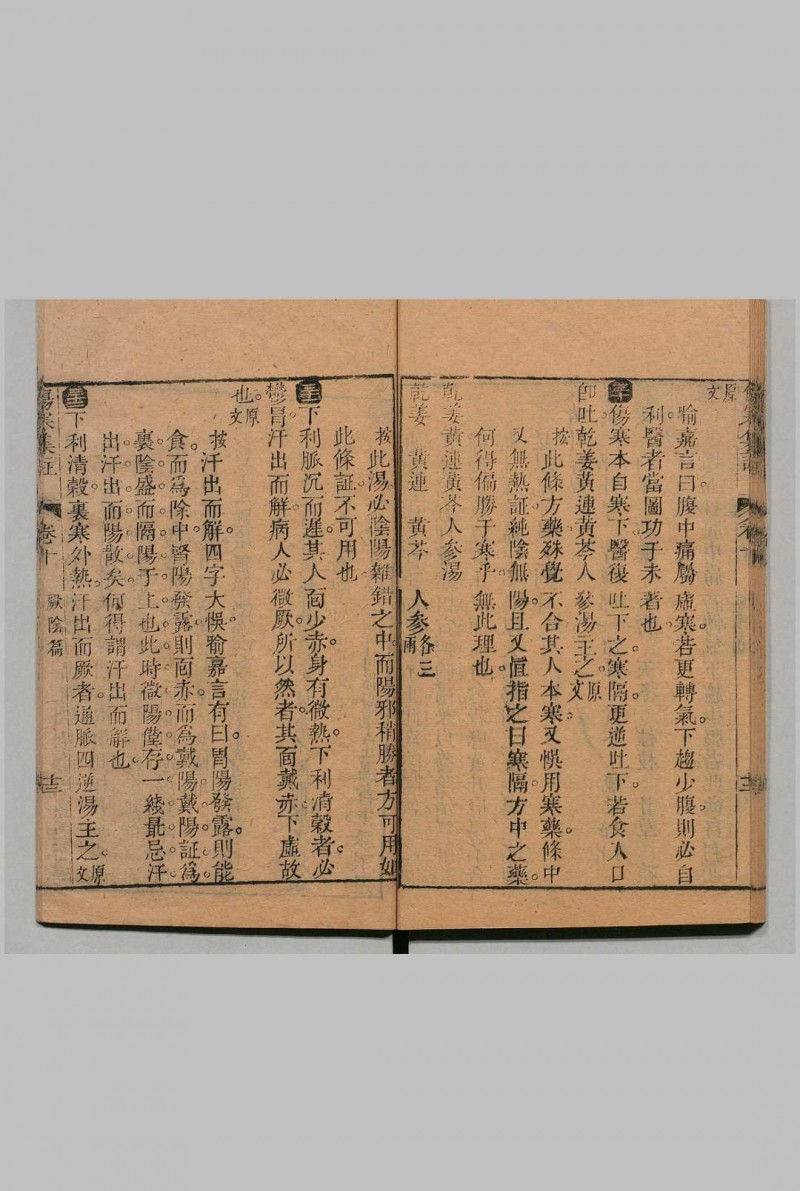 原文
喻嘉言曰腹中痛屬虛寒若更轉氣下趨少腹則必自
利醫者當圖功于未著也
三十傷寒本自寒下醫復吐下之寒隔更逆吐下若食入口
卽吐乾姜黃連黃芩人參湯主之原文
按此條方藥殊覺不合其人本寒又悞用寒藥條中
又無熱証純陰無陽且又直指之曰寒隔方中之藥
何得偏勝于寒乎無此理也
乾姜黃連黃芩人參湯
乾姜 黃連 黃芩 人參各三兩
按此湯必陰陽雜錯之中而陽邪稍勝者方可用如
此條証不可用也
下利脈沉而遲其人面少赤身有微熱下利清穀者必
鬱冒汗出而解病人必微厥所以然者其面戴赤下虛故
也原文
按汗出而解四字大悞喻嘉言有曰胃陽發露則能
食而爲除中腎陽發露則面赤而爲戴陽戴陽証爲
裏陰盛而隔陽于上也此時微陽僅存一綫最忌汗
出汗出而陽散矣何得謂汗出而解也
下利清穀裏寒外熱汗出而厥者通脈四逆湯主之原文
傷寒集註 卷十 厥陰篇 十三